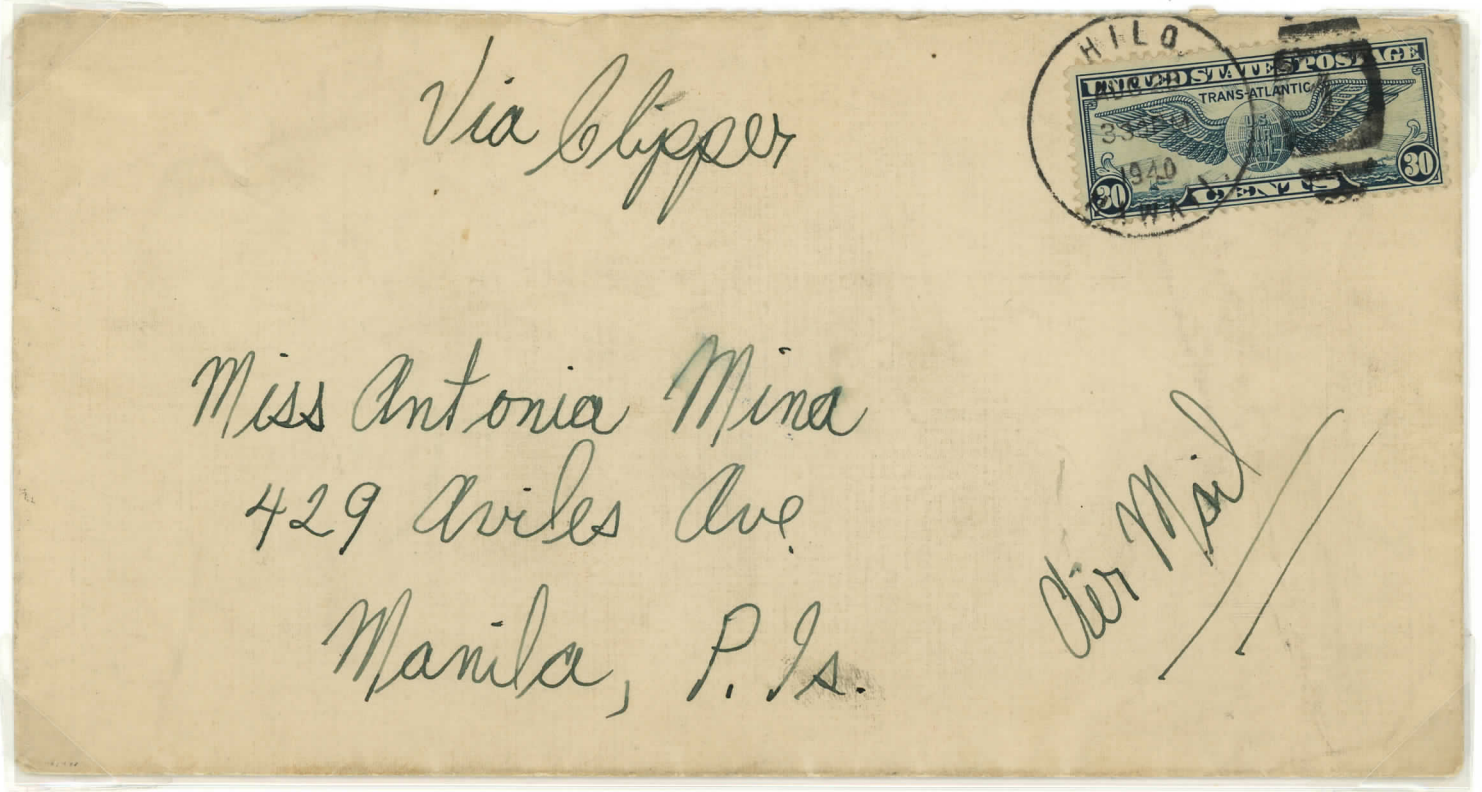 Via Clipper
HILO
1940
UNITED STATES POSTAGE
TRANS-ATLANTIC
30 CENTS 30
Miss Antonia Mina
429 Aviles Ave.
Manila, P. Is.
Air Mail